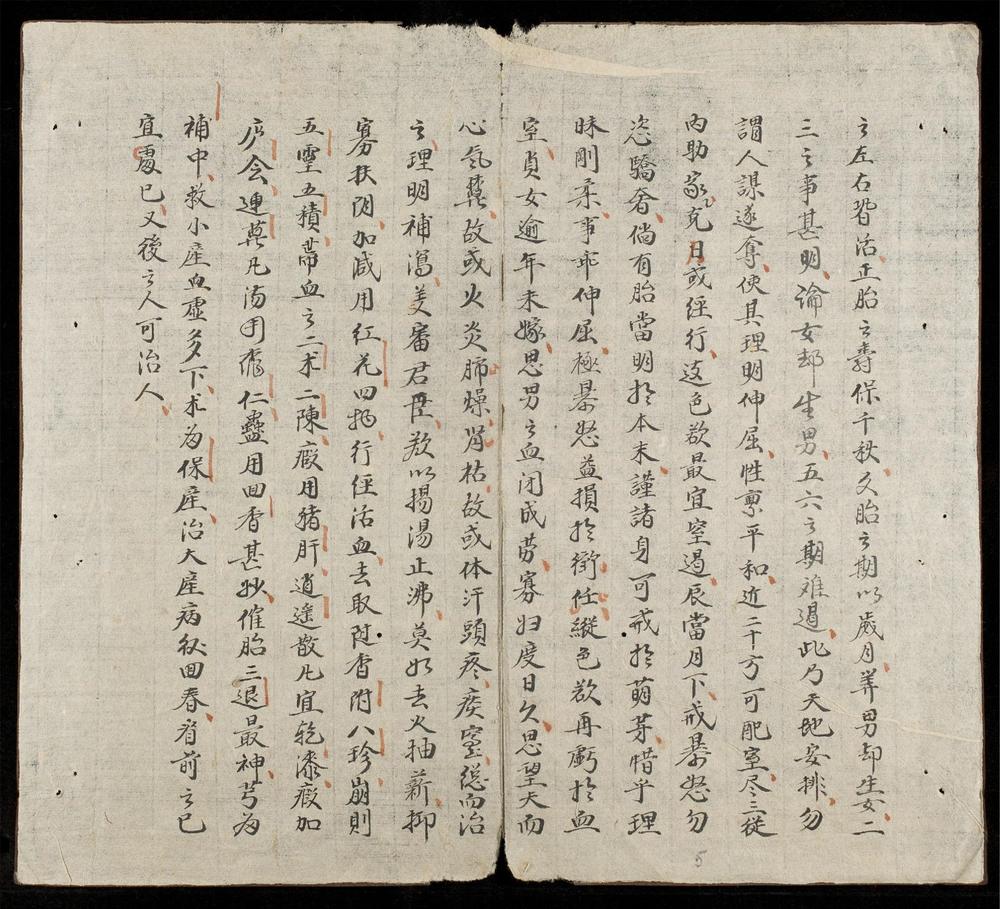 之左右皆活止胎之壽保千秋久胎之期以歲月葬男却生女二
三之事甚明論女却生男五六之期难過此乃天地安排勿
謂人謀遂奪使其理明伸屈性禀平和近二十方可配室尽三従
內助家克日或経行这色欲最宜窒遏辰當月下戒暴怒勿
恣驕奢倘有胎當明扵本末謹諸身可戒扵萌芽惜乎理
昧剛柔事乖伸屈極暴怒益損扵衝任縱色欲再虧扵血
室貞女逾年未嫁思男之血闭成劳寡妇度日久思望夫而
心氣斃故或火炎肺燥肾枯故或体汗頭疼痰窒総而治
之理明補瀉美審君臣欲以揚湯止沸莫如去火抽薪抑
寡扶阴加减用红花四物行経活血去取附香附八珍崩則
五靈五積帶血之二术二陳瘕用猪肝逍遙散凡宜乾漆瘕加
芦会連莫凡湯用飛仁蠱用回香甚妙催胎三退最神芎為
補中救小産血虛多下术为保產治大産病狄回春省前之已
宜處已又後之人可治人
5